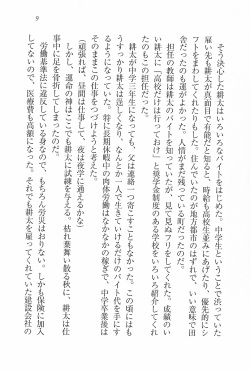 9
そう決心した耕太はいろいろなバイトをはじめた。中学生ということで渋っていた
雇い先も耕太が真面目で有能だと知ると、時給も高校生並みにあげたり、優先的にシ
フトまでまわしたりもした。住んでいたのが地方都市のはずれで、いい意味で田
舎だったのも運がよかった。人情がまだ残っている町だったのだ。
担任の教師は耕太のバイトを知っていたが、見て見ぬフリをしてくれた。成績のい
い耕太に「高校だけは行っておけ」と奨学金制度のある学校をいろいろ紹介してくれ
たのもこの担任だった。
耕太が中学三年生になっても、父は連絡一つ寄こすこともなかった。この頃にはも
うすっかり耕太は逞しくなり、なんとか一人で生きていけるだけのバイト代を手にす
るようになっていた。特に長期休暇中の肉体労働はなかなかの稼ぎで、中学卒業後は
そのままこの仕事をつづけようと考えた。
（頑張れば、昼間は仕事して、夜は夜学に通えるかな）
しかし、運命の神はここでも耕太に試練を与える。枯れ葉舞い散る秋に、耕太は仕
事中に足を骨折してしまったのだ。
労働基準法に違反している身なので、もちろん労災はおりない。しかも保険に加入
してないので、医療費も高額になった。それでも耕太を雇ってくれていた建設会社の